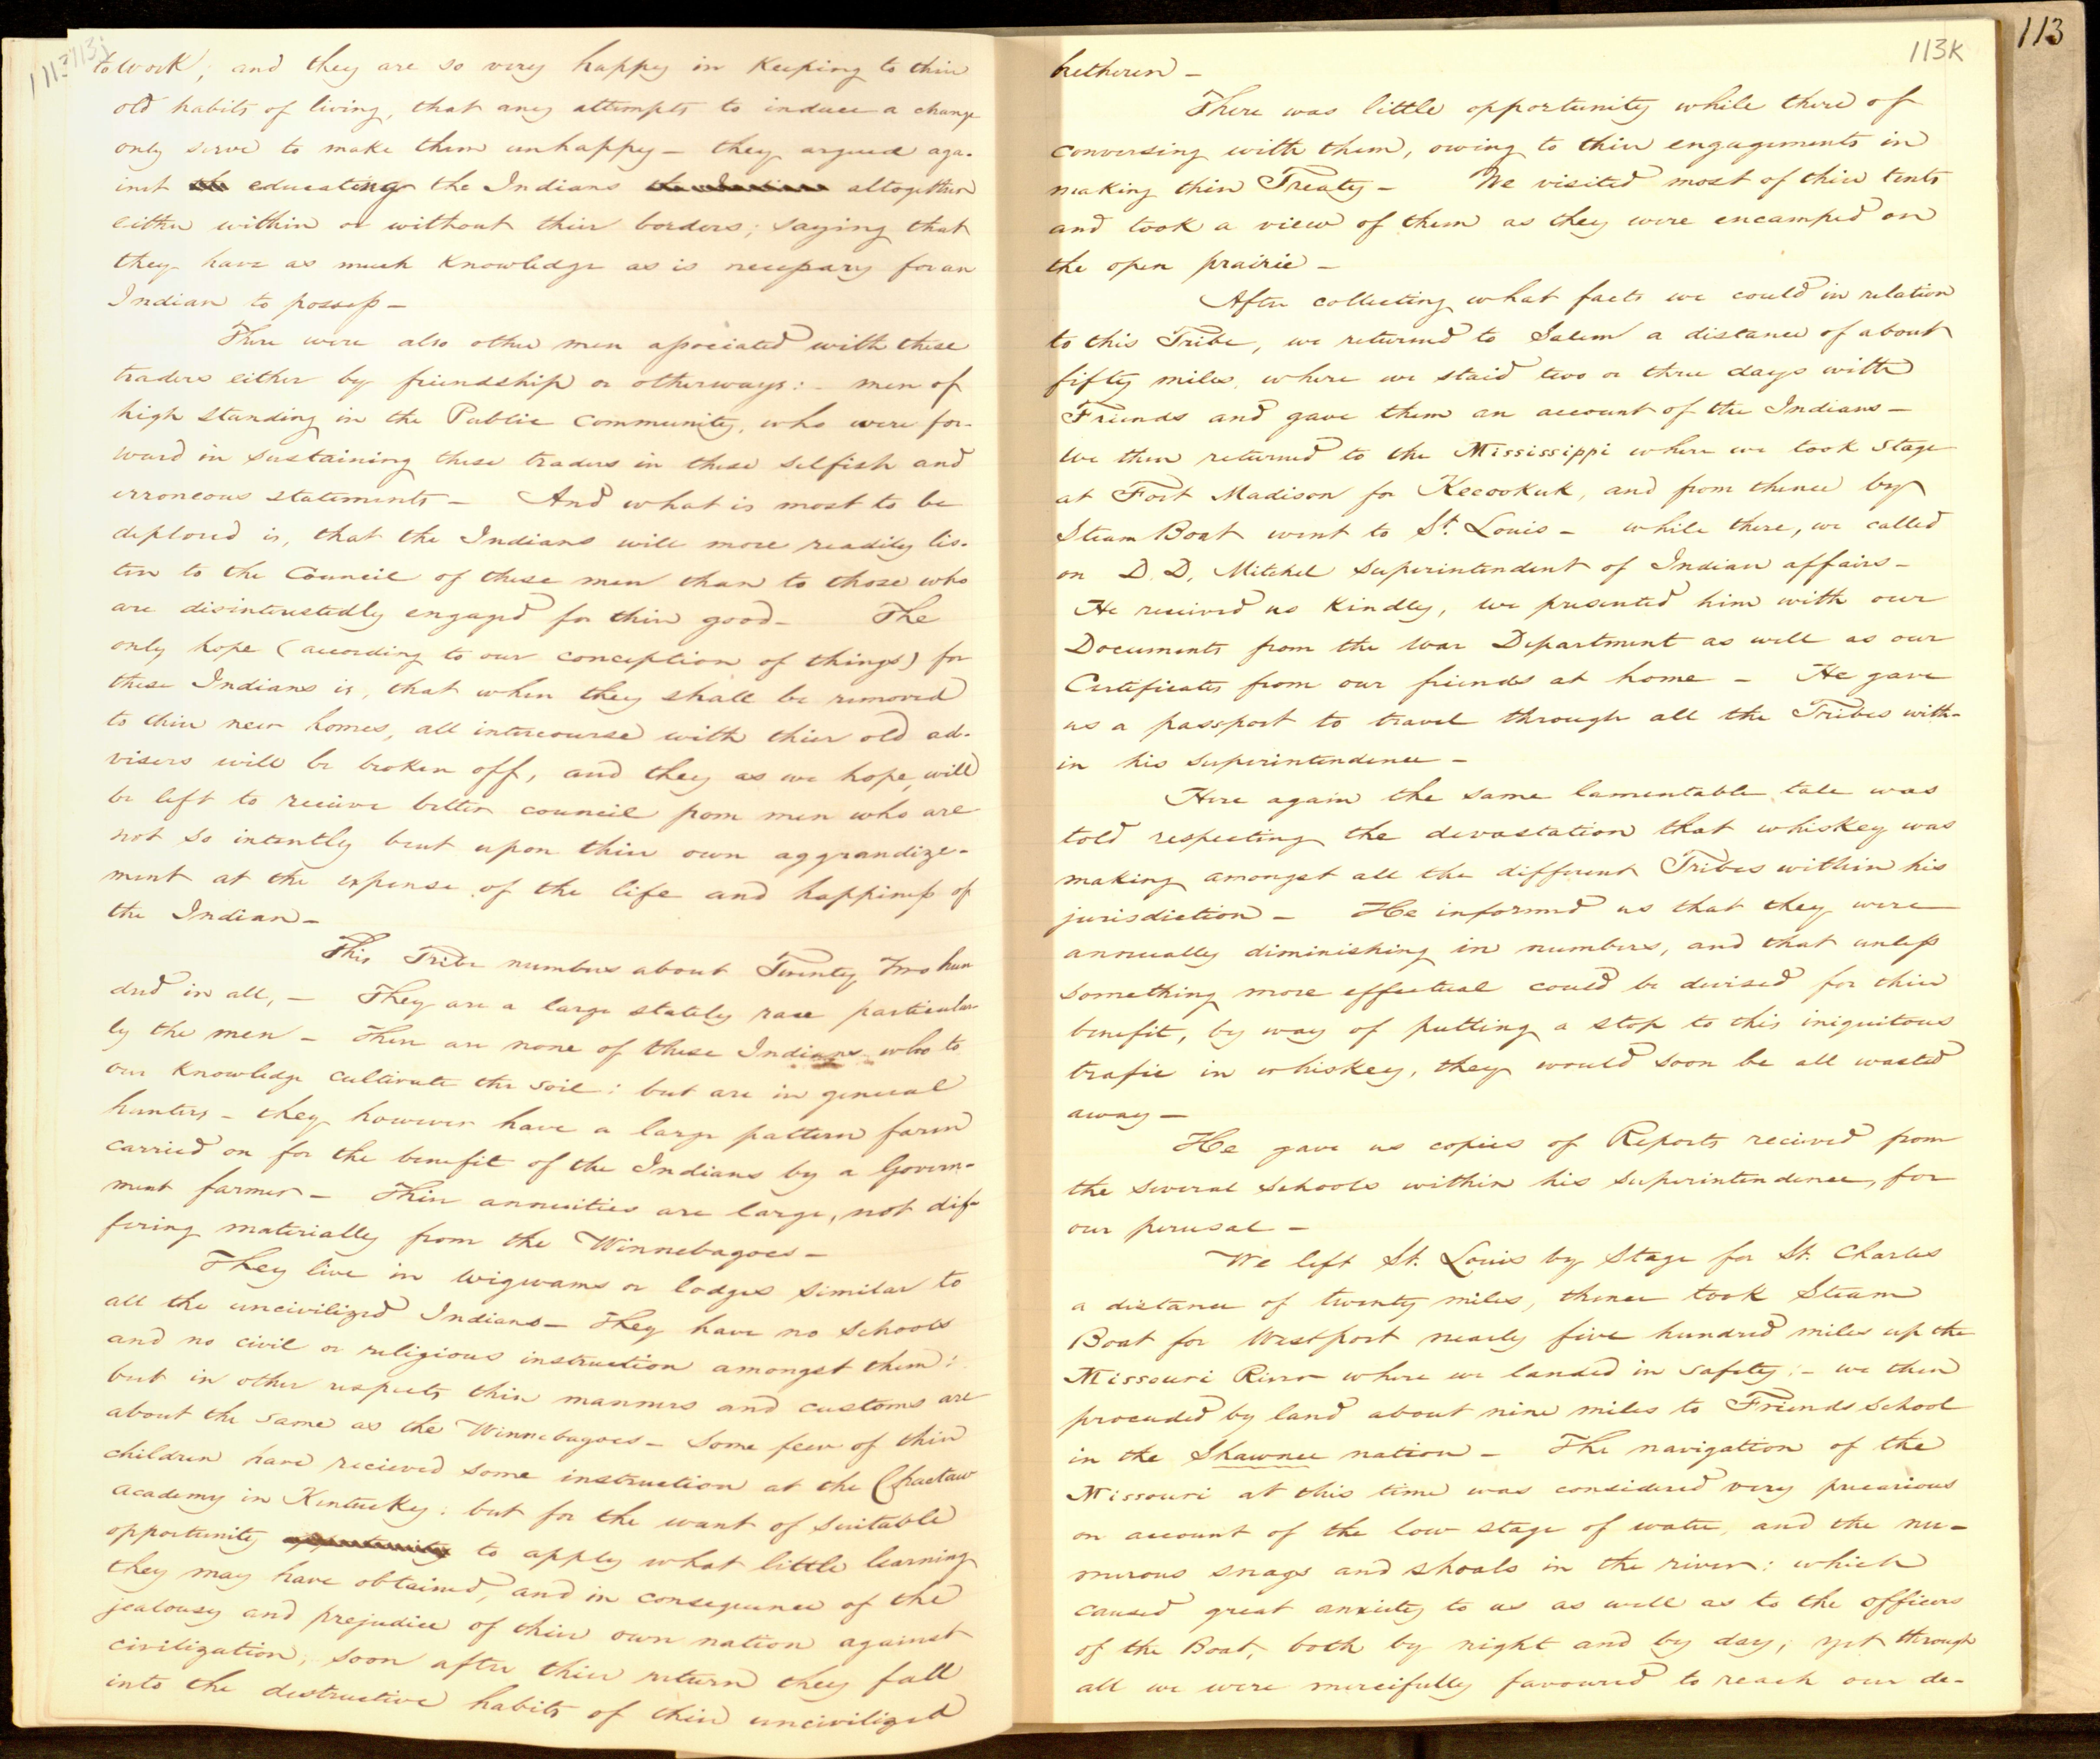 113j
to work; and they are so very happy in Keeping to thier
old habits of living, that any attempts to induce a change
only serve to make them unhappy – they argued aga-
inst the educating the Indians the Indians altogether
either within or without thier borders; saying that
they have as much Knowledge as is necessary for an
Indian to possess –
There were also other men associated with these
traders either by friendship or otherways: – men of
high standing in the Public Community, who were for-
ward in sustaining these traders in these selfish and
erroneous statements – And what is most to be
deplored is, that the Indians will more readily lis-
ten to the Council of these men than to those who
are disinterestedly engaged for thier good – The
only hope (according to our conception of things) for
these Indians is, that when they shall be removed
to thier new homes, all intercourse with thier old ad-
visers will be broken off, and they as we hope, will
be left to receive better council from men who are
not so intently bent upon thier own aggrandize-
ment at the expense of the life and happiness of
the Indian –
This Tribe numbers about Twenty Two hun
dred in all, – They are a large stately race particular-
ly the men – There are none of these Indians who to
our Knowledge cultivate the soil: but are in general
hunters – they however have a large pattern farm
carried on for the benefit of the Indians by a Govern-
ment farmer – Thier annuities are large, not dif-
fering materially from the Winnebagoes –
They live in wigwams or lodges similar to
all the uncivilized Indians – They have no schools
and no civil or religious instruction amongst them:
but in other respects thier manners and customs are
about the same as the Winnebagoes – Some few of thier
children have recieved some instruction at the Chactaw
Academy in Kentucky: but for the want of suitable
opportunity opportunity to apply what little learning
they may have obtained, and in consequence of the
jealousy and prejudice of thier own nation against
civilization, soon after thier return they fall
into the destructive habits of thier uncivilized
113
113K
bretheren –
There was little opportunity while there of
conversing with them, owing to thier engagements in
making thier Treaty – We visited most of thier tents
and took a view of them as they were encamped on
the open prairie –
After collecting what facts we could in relation
to this Tribe, we returned to Salem a distance of about
fifty miles, where we staid two or three days with
Friends and gave them an account of the Indians –
We then returned to the Mississippi where we took Stage
at Fort Madison for Keeookuk, and from thence by
Steam Boat went to St. Louis – while there, we called
on D. D. Mitchel Superintendent of Indian affairs –
He received us Kindly, we presented him with our
Documents from the War Department as well as our
Certificates from our friends at home – He gave
us a passport to travel through all the Tribes with-
in his superintendence –
Here again the same lamentable tale was
told respecting the devastation that whiskey was
making amongst all the different Tribes within his
jurisdiction – He informed us that they were
annually diminishing in numbers, and that unless
something more effectual could be devised for thier
benefit, by way of putting a stop to this iniquitous
trafic in whiskey, they would soon be all wasted
away –
He gave us copies of Reports recieved from
the several schools within his superintendence, for
our perusal –
We left St. Louis by Stage for St. Charles
a distance of twenty miles, thence took Steam
Boat for Westport nearly five hundred miles up the
Missouri River where we landed in safety: – we then
proceeded by land about nine miles to Friends School
in the Shawnee nation – The navigation of the
Missouri at this time was considered very precarious
on account of the low stage of water, and the nu-
merous snags and shoals in the river: which
caused great anxiety to us as well as to the officers
of the Boat, both by night and by day; yet through
all we were mercifully favoured to reach our de-